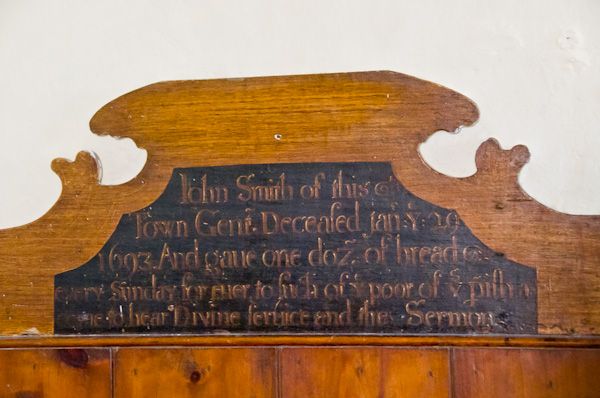 Iohn Smith of this
Town Genᵗ. Deceaſed janʳ. yᵉ 29
1693. And gaue one dozⁿ. of bread
euery Sunday for euer to ſuch of yᵉ poor of yᵉ pſh
to hear Divine ſeruice and the Sermon